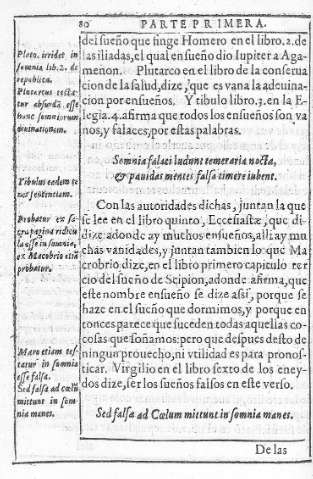 80 PARTE PRIMERA.
del sueño que finge Homero en el libro.2.de
las iliadas, el qual en sueño dio Iupiter a Aga-
menon. Plutarco en el libro de la conserua
cion de la salud, dize, que es vana la adeuina-
cion por ensueños. Y tibulo libro.3. en la E-
legia.4. afirma que todos los ensueños son va
nos, y falaces, por estas palabras.
Somnia falaci ludunt temeraria nocta,
& pauidas mentes falsa timere iubent.
Con las autoridades dichas, juntan la que
se lee en el libro quinto, Ecclesiastæ, que di-
dize: adonde ay muchos ensueños, alli ay mu
chas vanidades, y juntan tambien lo que Ma
crobrio dize, en el libro primero capitulo ter
cio del sueño de Scipion, adonde afirma, que
este nombre ensueño se dize assi, porque se
haze en el sueño que dormimos, y porque en
tonces parece que suceden todas aquellas co-
cosas que soñamos: pero que despues desto de
ningun prouecho, ni vtilidad es para pronos-
ticar. Virgilio en el libro sexto de los eney-
dos dize, ser los sueños falsos en este verso.
Sed falsa ad Cœlum mittunt in somnia manes.
De las
Plato. irridet in
somnia lib. 2. de
republica.
Plutarcus testa-
tur absurdã esse
hanc somniorum
diuinationem.
Tibulus eadem te
net sententiam.
Probatur ex sa-
gra pagina ridicu
la esse in somnia,
ex Macobrio etiã
probatur.
Maro etiam tes-
tatur in somnia
esse falsa.
Sed falsa ad Cœlum
mittunt in som
nia manes.